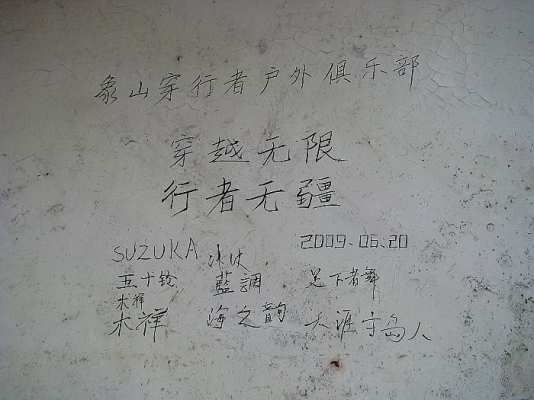 象山穿行者户外俱乐部
穿越无限
行者无疆
2009.06.20
SUZUKA 冰火
五十轮 藍調 足下者舞
水祥
木祥 海之韵 天涯守岛人